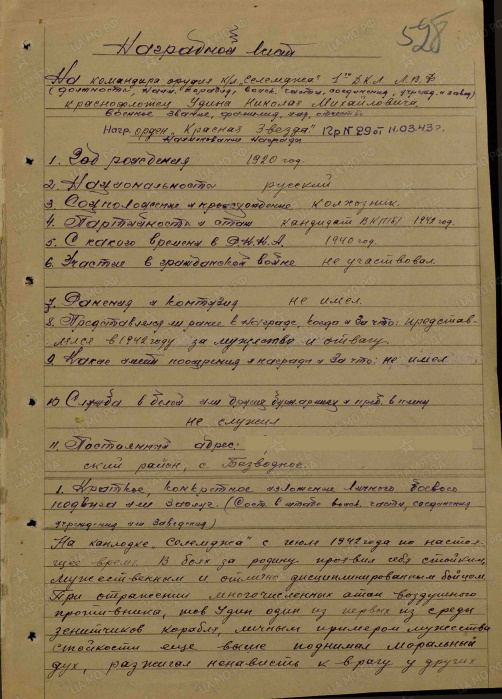 528
Наградной лист
На командира орудия к/л "Селемджа" 1го ДКЛ Л.В.Ф
(должность, наим. корабля, воинск. части, соединения, учрежд. и завед)
краснофлотец Удина Николая Михайловича
воинское звание, фамилия, имя, отчество
Нагр. орден "Красная Звезда" Пр № 29 от 11.03.43г.
Наименование награды
1. Год рождения 1920 год.
2. Национальность русский
3. Соцположение и происхождение колхозник.
4. Партийность и стаж кандидат ВКП(б) 1942 год.
5. С какого времени в Р.К.К.А. 1940 год.
6. Участие в гражданской войне не участвовал
7. Ранения и контузия не имел.
8. Представлялся ли ранее к награде, когда и за что: представ-
лялся в 1942 году за мужество и отвагу.
9. Какие имеет поощрения и награды и за что: не имел
10. Служба в белой или других буржуазных и преб. в плену
не служил
11. Постоянный адрес:
ский район, с. Безводное.
1. Краткое, конкретное изложение личного боевого
подвига или заслуг. (Сост. в штабе воинск. части, соединения
учреждения или заведения)
На канлодке "Селемджа" с июля 1942 года по настоя-
щее время. В боях за родину проявил себя стойким,
мужественным и отлично дисциплинированным бойцом.
При отражении многочисленных атак воздушного
противника, тов Удин один из первых из среды
зенитчиков корабля, личным примером мужества
стойкости еще выше поднимал моральный
дух, разжигал ненависть к врагу у других